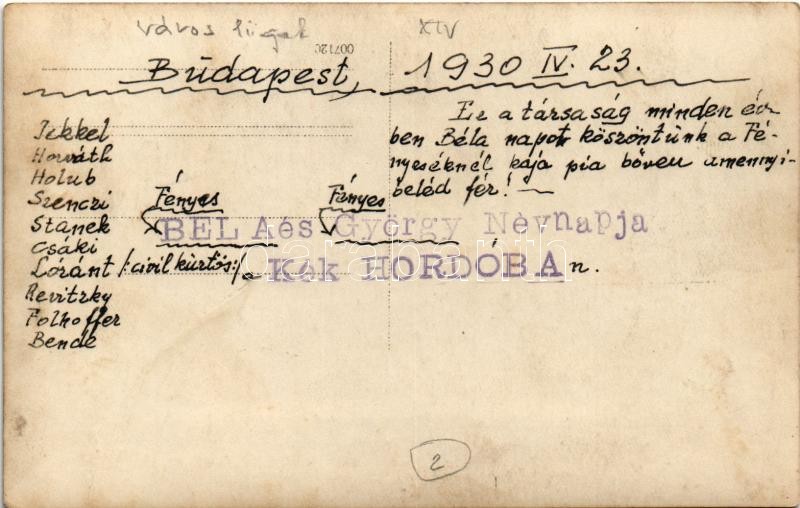 város liget XIV
007120
Budapest, 1930 IV. 23.
Ez a társaság minden év-
ben Béla napot köszöntünk a Fé-
nyeséknél kaja pia böven amennyi
beléd fér! —
Jekkel
Horváth
Holub
Szenczi
Stanek
Csáki
Lóránt /:civil kürtös:/
Revitzky
Folhoffer
Bende
Fényes Fényes
BÉL Aés György Névnapja
Kék HORDÓBA n.
2